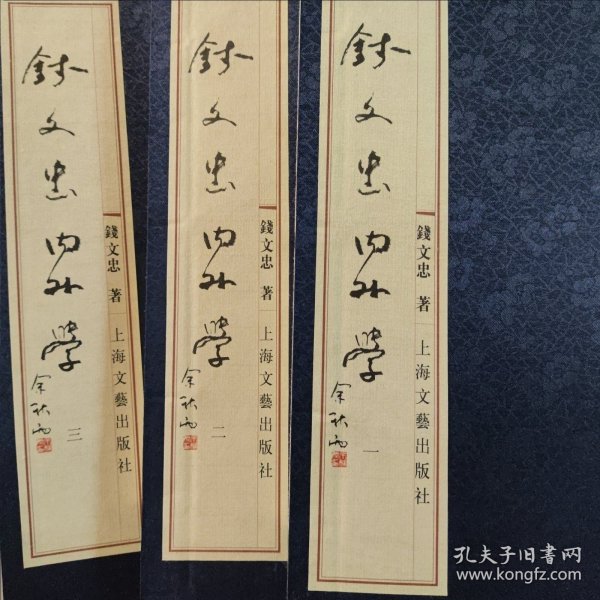 錢文忠內外學
余秋雨
一
錢文忠 著
上海文藝出版社
錢文忠內外學
余秋雨
二
錢文忠 著
上海文藝出版社
錢文忠內外學
余秋雨
三
錢文忠 著
上海文藝出版社
孔夫子旧书网
www.kongfz.com